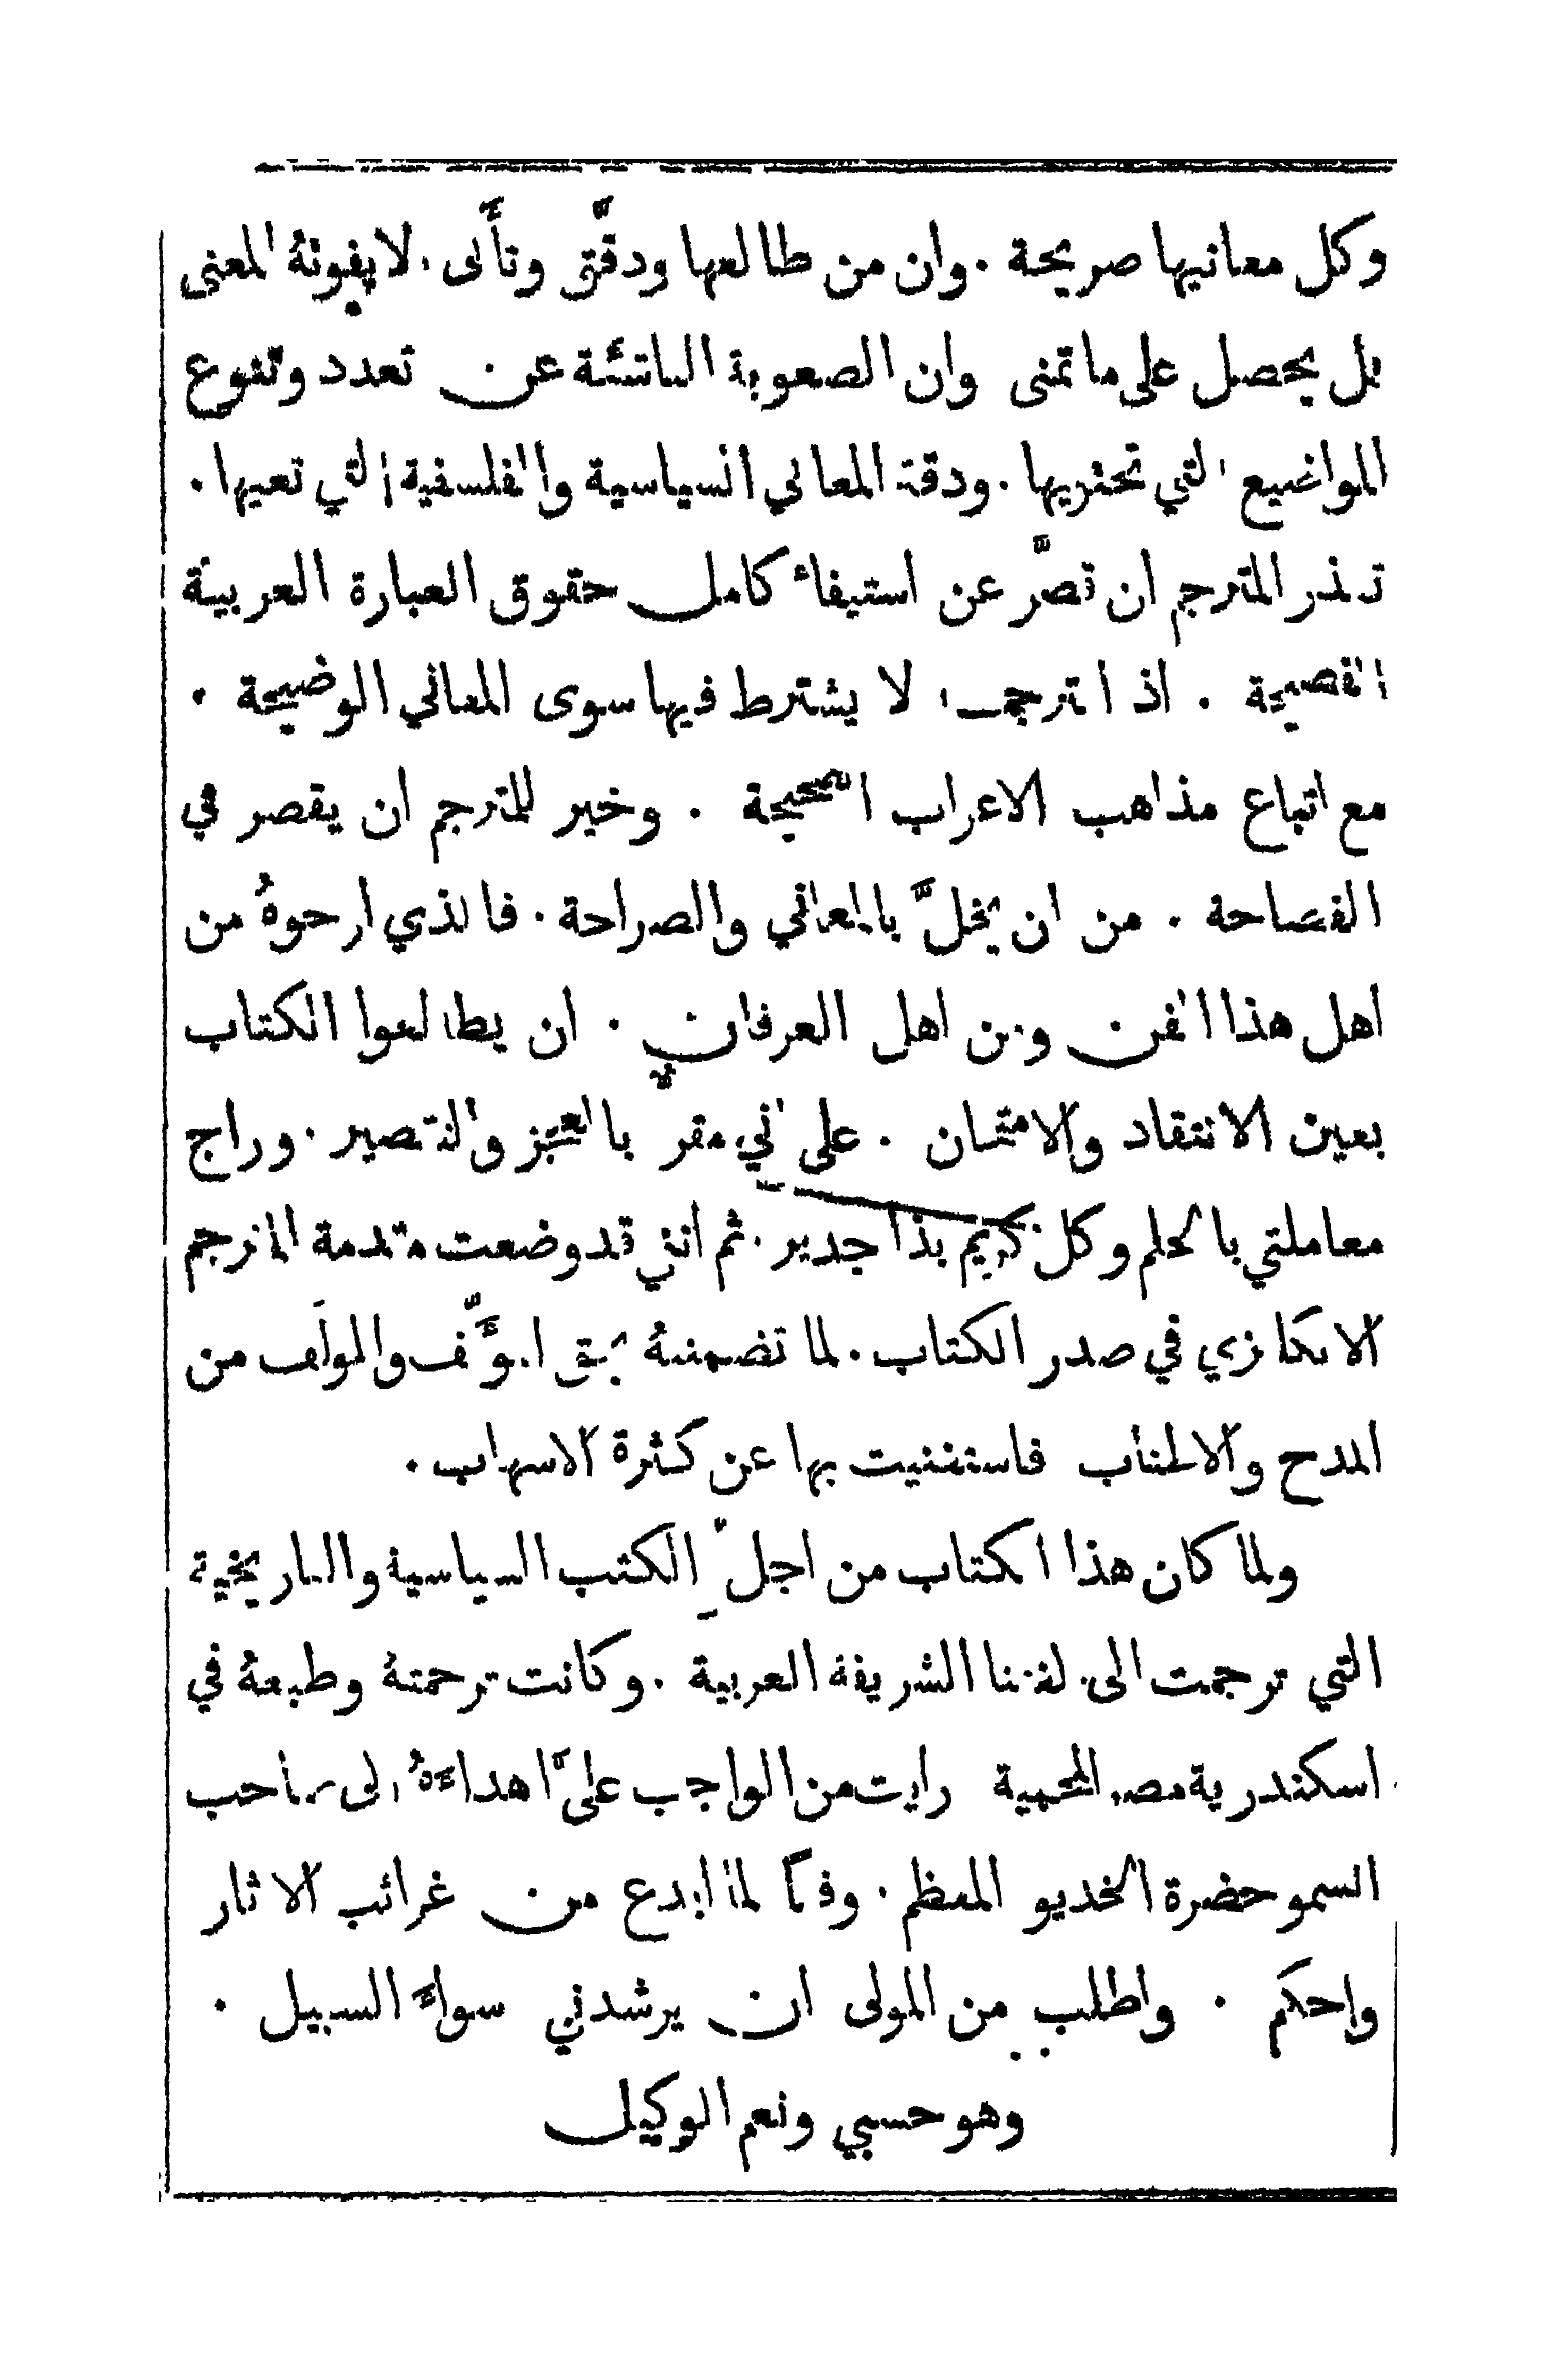 وكل معانيها صريحة . وان من طالعها ودقَّق وتأَنى . لا يفوتهُ المعنى
بل يحصل على ما تمنى وان الصعوبة الناشئة عن تعدد وتنوع
المواضيع التي تحتويها . ودقة المعاني السياسية والفلسفية التي تعيها .
تعذر المترجم ان قصَّر عن استيفاء كامل حقوق العبارة العربية
الفصيحة . اذ الترجمة لا يشترط فيها سوى المعاني الوضيحة .
مع اتباع مذاهب الاعراب الصحيحة . وخير للمترجم ان يقصر في
الفصاحة . من ان يخلَّ بالمعاني والصراحة . فالذي ارجوهُ من
اهل هذا الفن ومن اهل العرفان . ان يطالعوا الكتاب
بعين الانتقاد والامتنان . على اني مقر بالعجز والتقصير . وراج
معاملتي بالحلم وكل كريم بذا جدير . ثم انني قد وضعت مقدمة المترجم
الانكليزي في صدر الكتاب . لما تضمنتهُ بحق المؤَلَّف والمولف من
المدح والاطناب فاستغنيت بها عن كثرة الاسهاب .
ولما كان هذا الكتاب من اجلّ الكتب السياسية والتاريخية
التي ترجمت الى لغتنا الشريفة العربية . وكانت ترجمتهُ وطبعهُ في
اسكندرية مصر المحمية رايت من الواجب عليَّ اهداءَهُ الى صاحب
السمو حضرة الخديو المعظم . وفقًا لما ابدع من غرائب الاثار
واحكم . واطلب من المولى ان يرشدني سواءَ السبيل .
وهو حسبي ونعم الوكيل